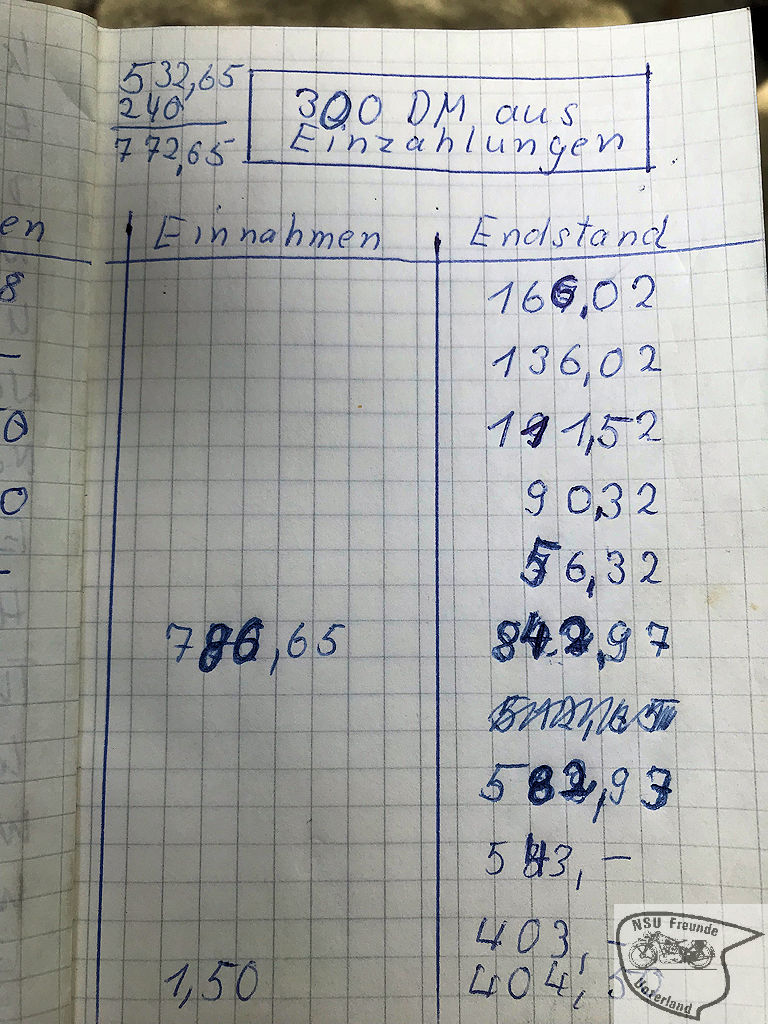 532,65
240
772,65
300 DM aus
Einzahlungen
en Einnahmen Endstand
8 166,02
– 136,02
0 111,52
0 90,32
- 56,32
786,65 842,97
582,97
543,–
403,-
1,50 404,50
NSU Freunde
Unterland